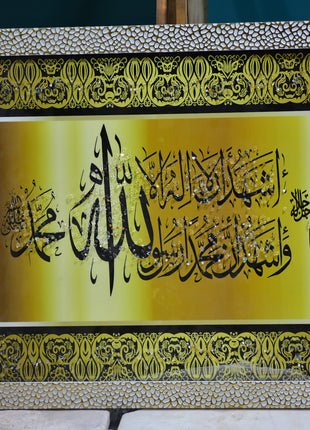 أشهد أن لا إله إلا الله
وأشهد أن محمدا رسول الله
محمد